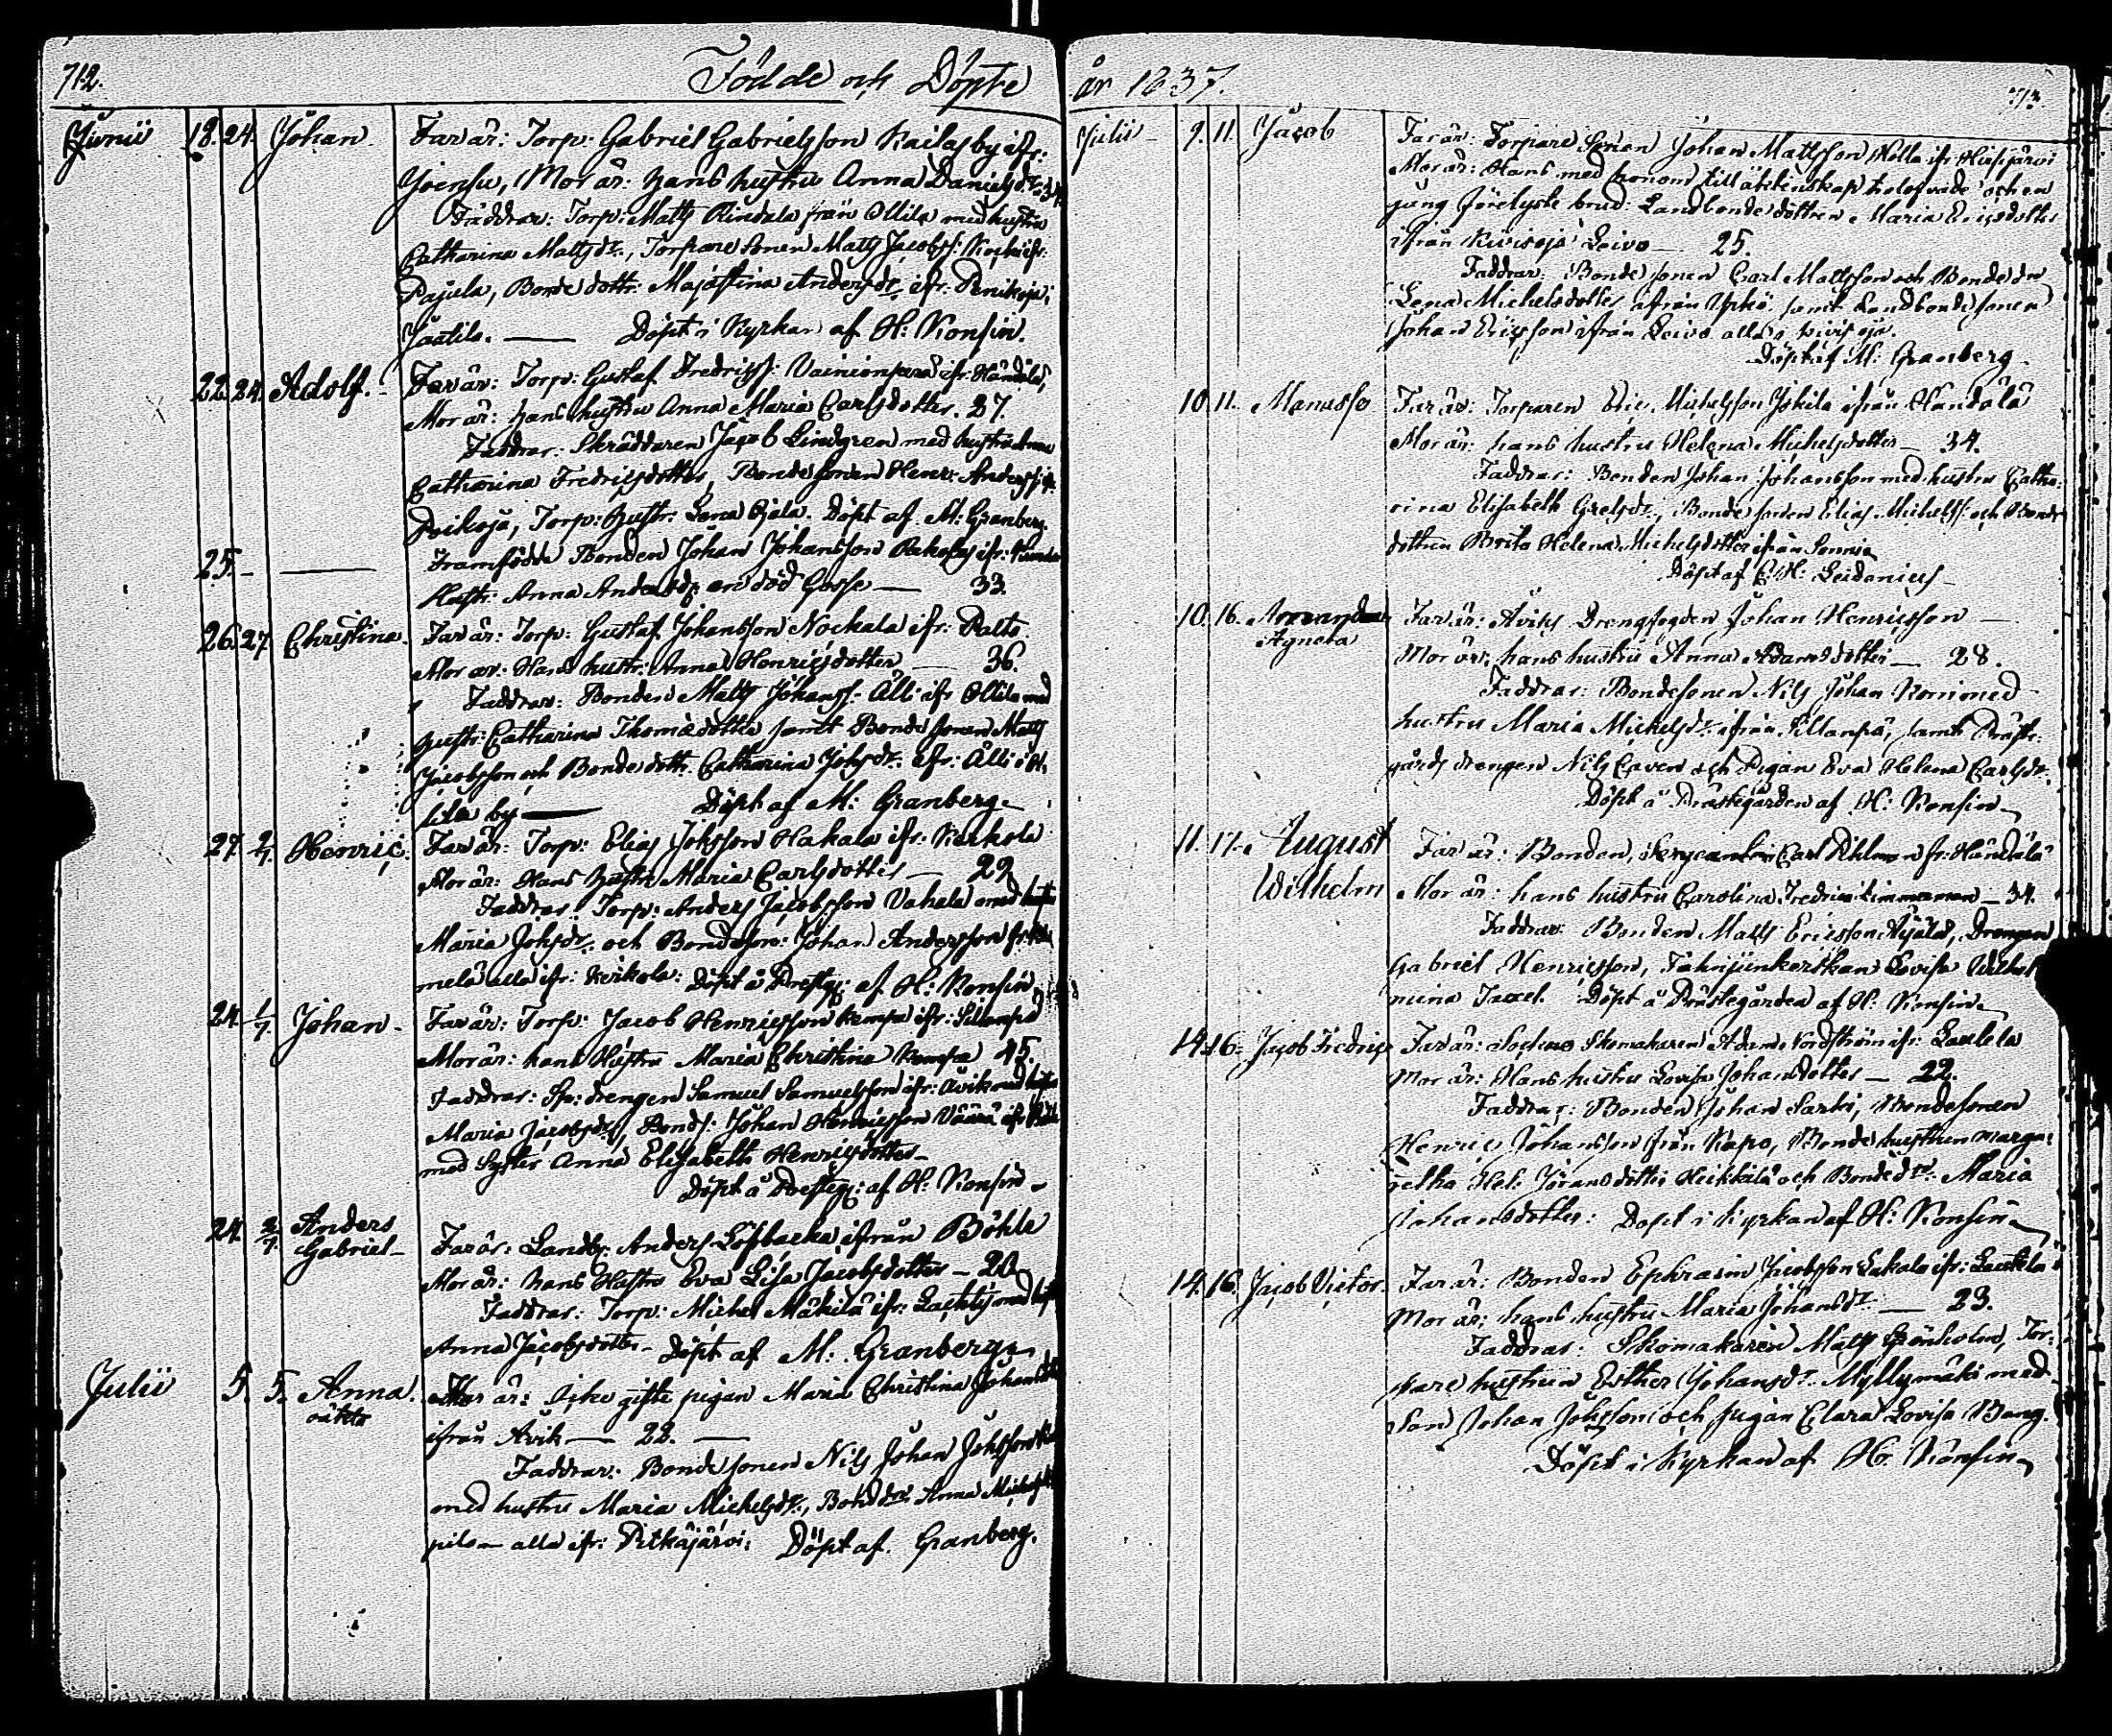 712. Födde och Döpte
Junii 18. 24. Johan. Far är: Torp: Gabriel Gabrielsson Kailasby ifr:
Joensu, Mor är: hans hustru Anna Danielsdr. 34.
Faddrar: Torp: Matts Rindala från Ollila med hustru
Catharina Mattsdr., Torpare sonen Matts Jacobss: ifr:
Pajula, Bonde dottr: Majastina Andersdr. ifr: Penikoja
Jaatila. — Döpt i Kyrkan af H: Konsin.
22. 24. Adolf. Far är: Torp: Gustaf Fredricss: Vainionpää ifr: Händälä,
Mor är: hans hustru Anna Maria Carlsdotter. 27.
Faddrar: Skräddaren Jacob Lindgren med hustru Anna
Catharina Fredricsdotter, Bonde sonen Henr: Anderss: ifr:
Torp: hustr: Lena Ojala. Döpt af M: Granberg.
25. — — Framfödde Bonden Johan Johansson ifr:
Hustr: Anna Andersdr: en död Gosse — 33.
26. 27. Christina. Far är: Torp: Gustaf Johansson Nockala ifr: Palto.
Mor är: Hans hustr: Anna Henricsdotter — 36.
Faddrar: Bonden Matts Johanss: Älli ifr Ollila med
hustr: Catharina Thomædotter samt Bonde sonen Matts
Jacobsson och Bonde dottr: Catharina Johsdr. ifr: Älli i Ol-
lila by — Döpt af M: Granberg.
27. 2/7. Henric. Far är: Torp: Elias Johsson Hakala ifr: Kerkola
Mor är: Hans hustru Maria Carlsdotter — 22
Faddrar: Torp: Anders Jacobsson Vahala med hustru
Maria Johsdr. och Bondeson: Johan Andersson
melä alla ifr: Kerkola: Döpt å Prestg: af H: Konsin.
24. 1/7. Johan — Far är: Torp: Jacob Henricsson Kempe ifr: Sillanpä
Mor är: hans Hustru Maria Christina Kempe 45.
Faddrar: drengen Samuel Samuelsson ifr: Åvik med hustru
Maria Jacobsdr, Bonds: Johan Henricsson Väärä ifr
med Syster Anna Elisabeth Henricsdotter —
Döpt å Prestg: af H: Konsin —
24. 2/7. Anders
Gabriel — Far är: Landb: Anders Löfbacka ifrån Böhle
Mor är: hans Hustru Eva Lisa Jacobsdotter — 20
Faddrar: Torp: Michel Mäkilä ifr: med hust
Anna Jacobsdotter — Döpt af M: Granberg.
Julii 5. 5. Anna.
oäkta Mor är: Icke gifte pigan Maria Christina Johansdr
ifrån Åvik — 22. —
Faddrar: Bonde sonen Nils Johan Johsson
med hustru Maria Michelsdr., Bonddr. Anna
alla ifr: Pitkäjärvi: Döpt af Granberg.
år 1837. 713.
Julii — 9. 11. Jacob Far är: Torpare Sonen Johan Mattsson Holla ifr: Hiisjärvi
Mor är: Hans med honom till äktenskap trolofvade och en
gång förelyste brud: Landbonde dottren Maria Ericsdotter
ifrån Kivisoja Leivo — 25.
Faddrar: Bonde sonen Carl Mattsson och Bonde dr
Lena Michelsdotter ifrån samt Landbonde sonen
Johan Ericsson ifrån Leivo alla i Kivisoja.
Döpt af M: Granberg —
10. 11. Manasse Far är: Torparen Eric Michelsson Jokila ifrån Händälä
Mor är: hans hustru Helena Michelsdotter — 34.
Faddrar: Bonden Johan Johansson med hustru Catha-
rina Elisabeth Grelsdr., Bonde sonen Elias Michelss: och Bonde
dottren Brita Helena Michelsdotter ifrån
Döpt af C. H: Leidenius —
10. 16. Amanda
Agneta Far är: Åviks Drengfogden Johan Henricsson —
Mor är: hans hustru Anna Adamsdotter — 28.
Faddrar: Bondesonen Nils Johan med
hustru Maria Michelsdr. ifrån Sillanpä, samt Präst-
gårds drengen Nils Caven och Pigan Eva Helena Carlsdr.
Döpt å Prästegården af H: Konsin —
11. 17. August
Wilhelm Far är: Bonden, Sergeanten Carl fr: Händälä
Mor är: hans hustru Carolina Fredrica Limmerman — 34.
Faddrar: Bonden Matts Ericsson Äijälä, Drengen
Gabriel Henricsson, Fahnjunkerskan Lovisa Wilhel-
mina Taxel. Döpt å Prästegården af H: Konsin —
14. 16. Jacob Fredric Far är: Sockne Skomakaren Adam Nordström ifr: Laulela
Mor är: Hans hustru Lovisa Johansdotter — 22.
Faddrar: Bonden Johan Sarki, Bondesonen
Henric Johansson från Kapo, Bonde hustrun Marga-
retha Hel: Jöransdotter Heikkilä och Bonde dr. Maria
Johansdotter: Döpt i Kyrkan af H: Konsin —
14. 16. Jacob Victor. Far är: Bonden Ephraim Jacobsson Lakala ifr: Laulela
Mor är: hans hustru Maria Johansdr. — 23.
Faddrar: Skomakaren Matts Grönholm, Tor-
pare hustrun Esther Johansdr. Myllymäki med
Son Johan Johsson och pigan Clara Lovisa Bang.
Döpt i Kyrkan af H: Konsin —